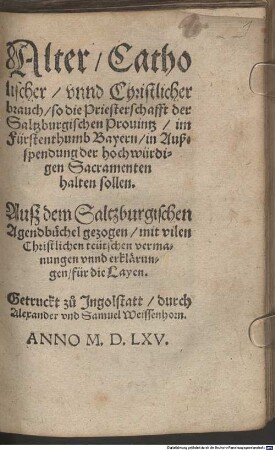 Alter / Catho
lischer / vnnd Christlicher
brauch / so die Priesterschafft der
Saltzburgischen Prouintz / im
Fürstenthumb Bayern / in Auß-
spendung der hochwürdi-
gen Sacramenten
halten sollen.
Auß dem Saltzburgischen
Agendbüchel gezogen / mit vilen
Christlichen teütschen verma-
nungen vnnd erklärun-
gen / für die Layen.
Getruckt zů Ingolstatt / durch
Alexander vnd Samuel Weissenhorn.
ANNO M. D. LXV.